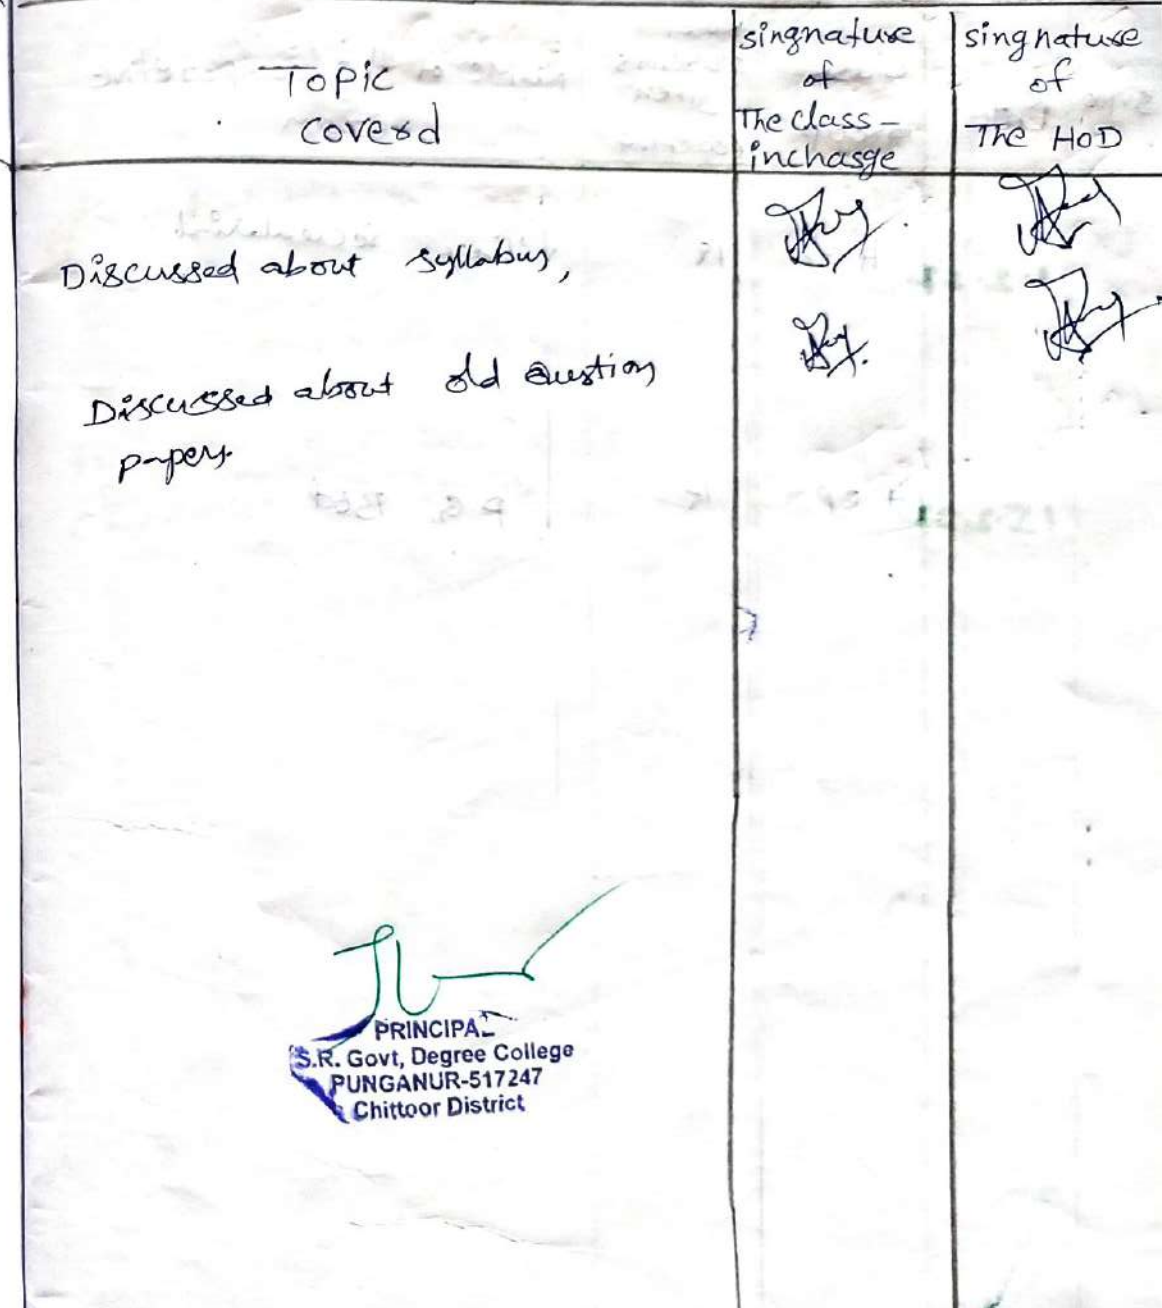 Topic
coverd
singnature
of
The class-
incharge
singnature
of
The HoD
Discussed about syllabus,
Discussed about old Qustion
papers.
PRINCIPAL
S.R. Govt, Degree College
PUNGANUR-517247
Chittoor District